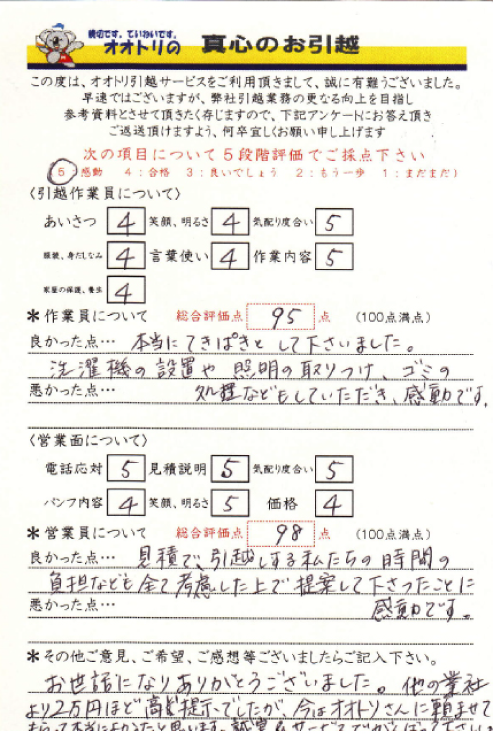 親切です。ていねいです。
オオトリの 真心のお引越
この度は、オオトリ引越サービスをご利用頂きまして、誠に有難うございました。
早速ではございますが、弊社引越業務の更なる向上を目指し
参考資料とさせて頂きたく存じますので、下記アンケートにお答え頂き
ご返送頂けますよう、何卒宜しくお願い申し上げます
次の項目について5段階評価でご採点下さい
5:感動 4:合格 3:良いでしょう 2:もう一歩 1:まだまだ)
〈引越作業員について〉
あいさつ 4 笑顔、明るさ 4 気配り度合い 5
服装、身だしなみ 4 言葉使い 4 作業内容 5
家屋の保護、養生 4
*作業員について 総合評価点 95 点 (100点満点)
良かった点… 本当にてきぱきと して下さいました。
洗濯機の設置や 照明の取りつけ、ゴミの
悪かった点… 処理などもしていただき、感動です。
〈営業面について〉
電話応対 5 見積説明 5 気配り度合い 5
パンフ内容 4 笑顔、明るさ 5 価格 4
*営業員について 総合評価点 98 点 (100点満点)
良かった点… 見積で、引越しする私たちの時間の
負担なども全て考慮した上で提案して下さったことに
悪かった点… 感動です。
*その他ご意見、ご希望、ご感想等ございましたらご記入下さい。
お世話になりありがとうございました。他の業社
より2万円ほど高く提示でしたが、今はオオトリさんに頼ませて
もらって本当によかったと思います。誠実なサービスでがんばって下さい。